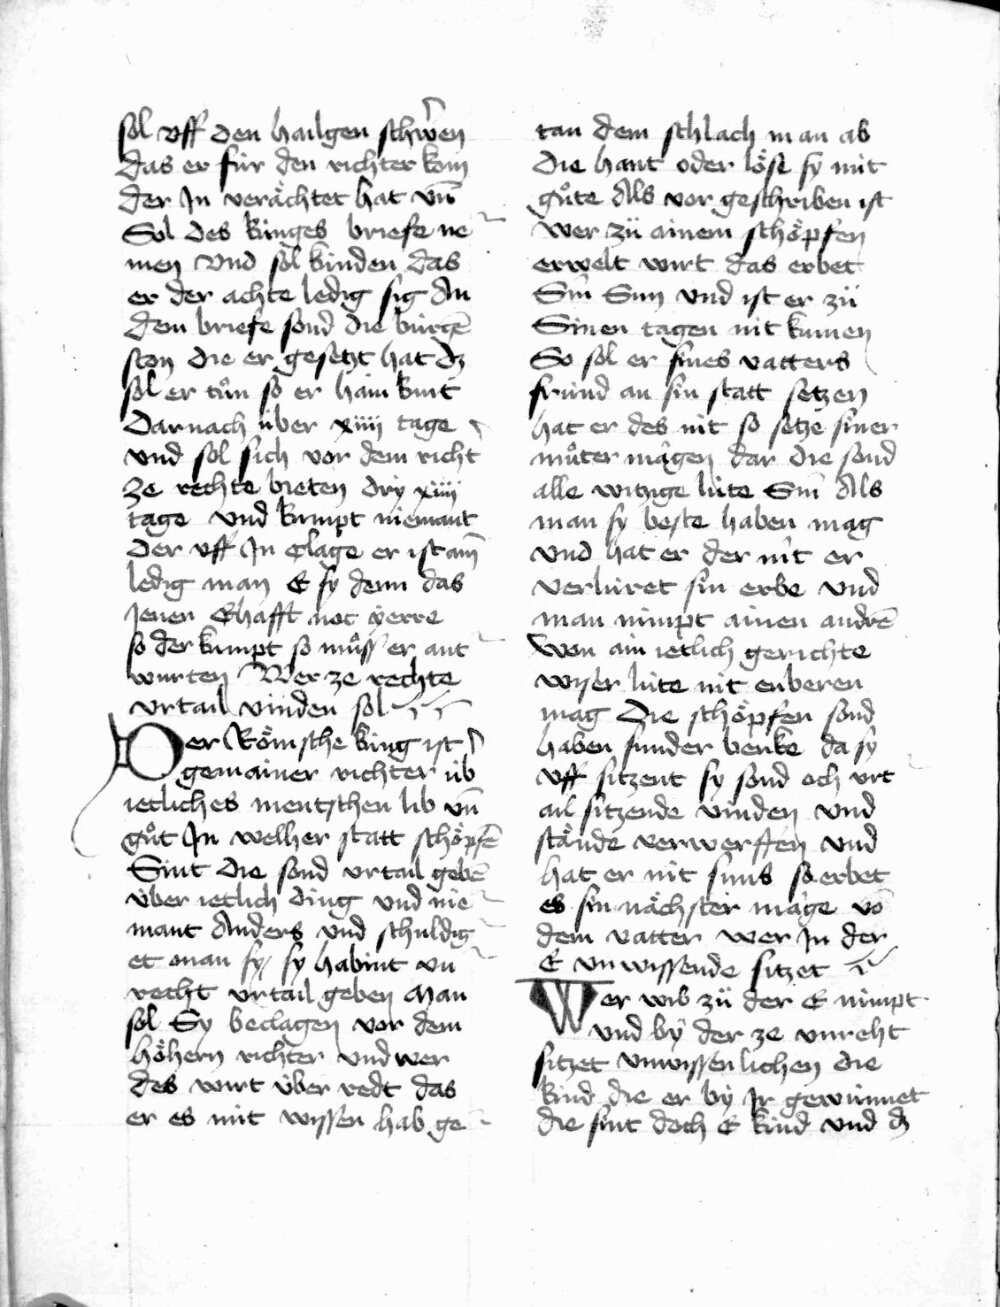 sol vff den hailgen schwern
das er für den richter kom
der In verächtet hat vn̄
Sol des kúnges briefe ne
men vnd sol kúnden das
er der achte ledig sig An
dem briefe sond die bürgē
ston die er gesetzt hat dz
sol er tůn so er haim kumt
Darnach über xiiii tage
vnd sol sich vor dem richt
ze rechte bieten dry xiiii
tage vnd kumpt niemant
Der vff In clage er ist ain
ledig man E sy denn das
Jenen Ehafft not yerre
so der kumpt so můss er ant
wurten Wer ze rechte
vrtail vinden sol
Der Römsche king ist
gemainer richter üb
ietliches mentschen lib vn̄
gůt In welher statt schöpfē
Sint die sond vrtail gebē
über ietlich ding vnd nie
mant Anders vnd schuldig
et man sy sy habint vn
recht vrtail geben Man
sol Sy beclagen vor dem
höhern richter vnd wer
des wirt über redt das
er es mit wissen hab ge
tan dem schlach man ab
die hant oder löse sy mit
gůte Als vor geschriben ist
wer zü ainem schöpfen
erwelt wirt das erbet
Sin Sun vnd ist er zü
Sinen tagen nit kumen
So sol er sines vatters
fründ an sin statt setzen
hat er des nit so setze siner
můter mágen dar die sond
alle witzige lüte Sin Als
man sy beste haben mag
vnd hat er der nit er
verlúret sin erbe vnd
man nimpt ainen andrē
Won ain ietlich gerichte
wiser lüte nit enberen
mag Die schöpfen sond
haben sunder benke da sy
vff sitzent sy sond och vrt
ail sitzende vinden vnd
stände verwerffen vnd
hat er nit suns so erbet
es sin nächster mage vō
dem vatter wer In der
E vnwissende sitzet
Wer wib zü der E nimpt
vnd by der ze vnreht
sitzet vnwissenlichen die
kind die er by Ir gewinnet
die sint doch E kind vnd dz